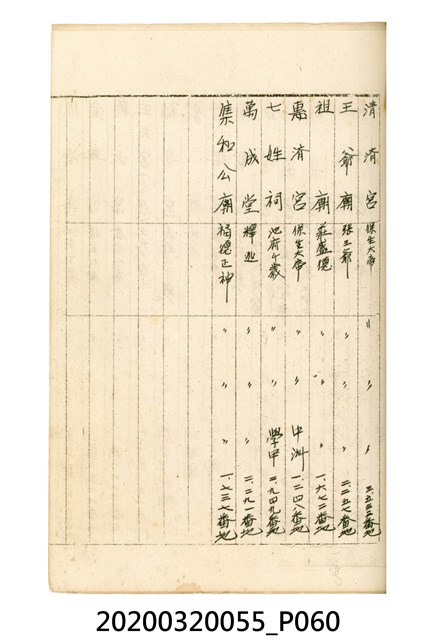 清濟宮 保生大帝 〃 〃 〃
王爺廟 張王爺 〃 〃 〃 二、二五七番地
祖廟 莊盛德 〃 〃 〃 一、六七二番地
惠濟宮 保生大帝 〃 〃 中洲 一、二四八番地
七姓祠 池府千歲 〃 〃 學甲 二、九四九番地
萬成堂 釋迦 〃 〃 〃 二、二九一番地
集和公廟 福德正神 〃 〃 〃 一、七三七番地
20200320055_P060